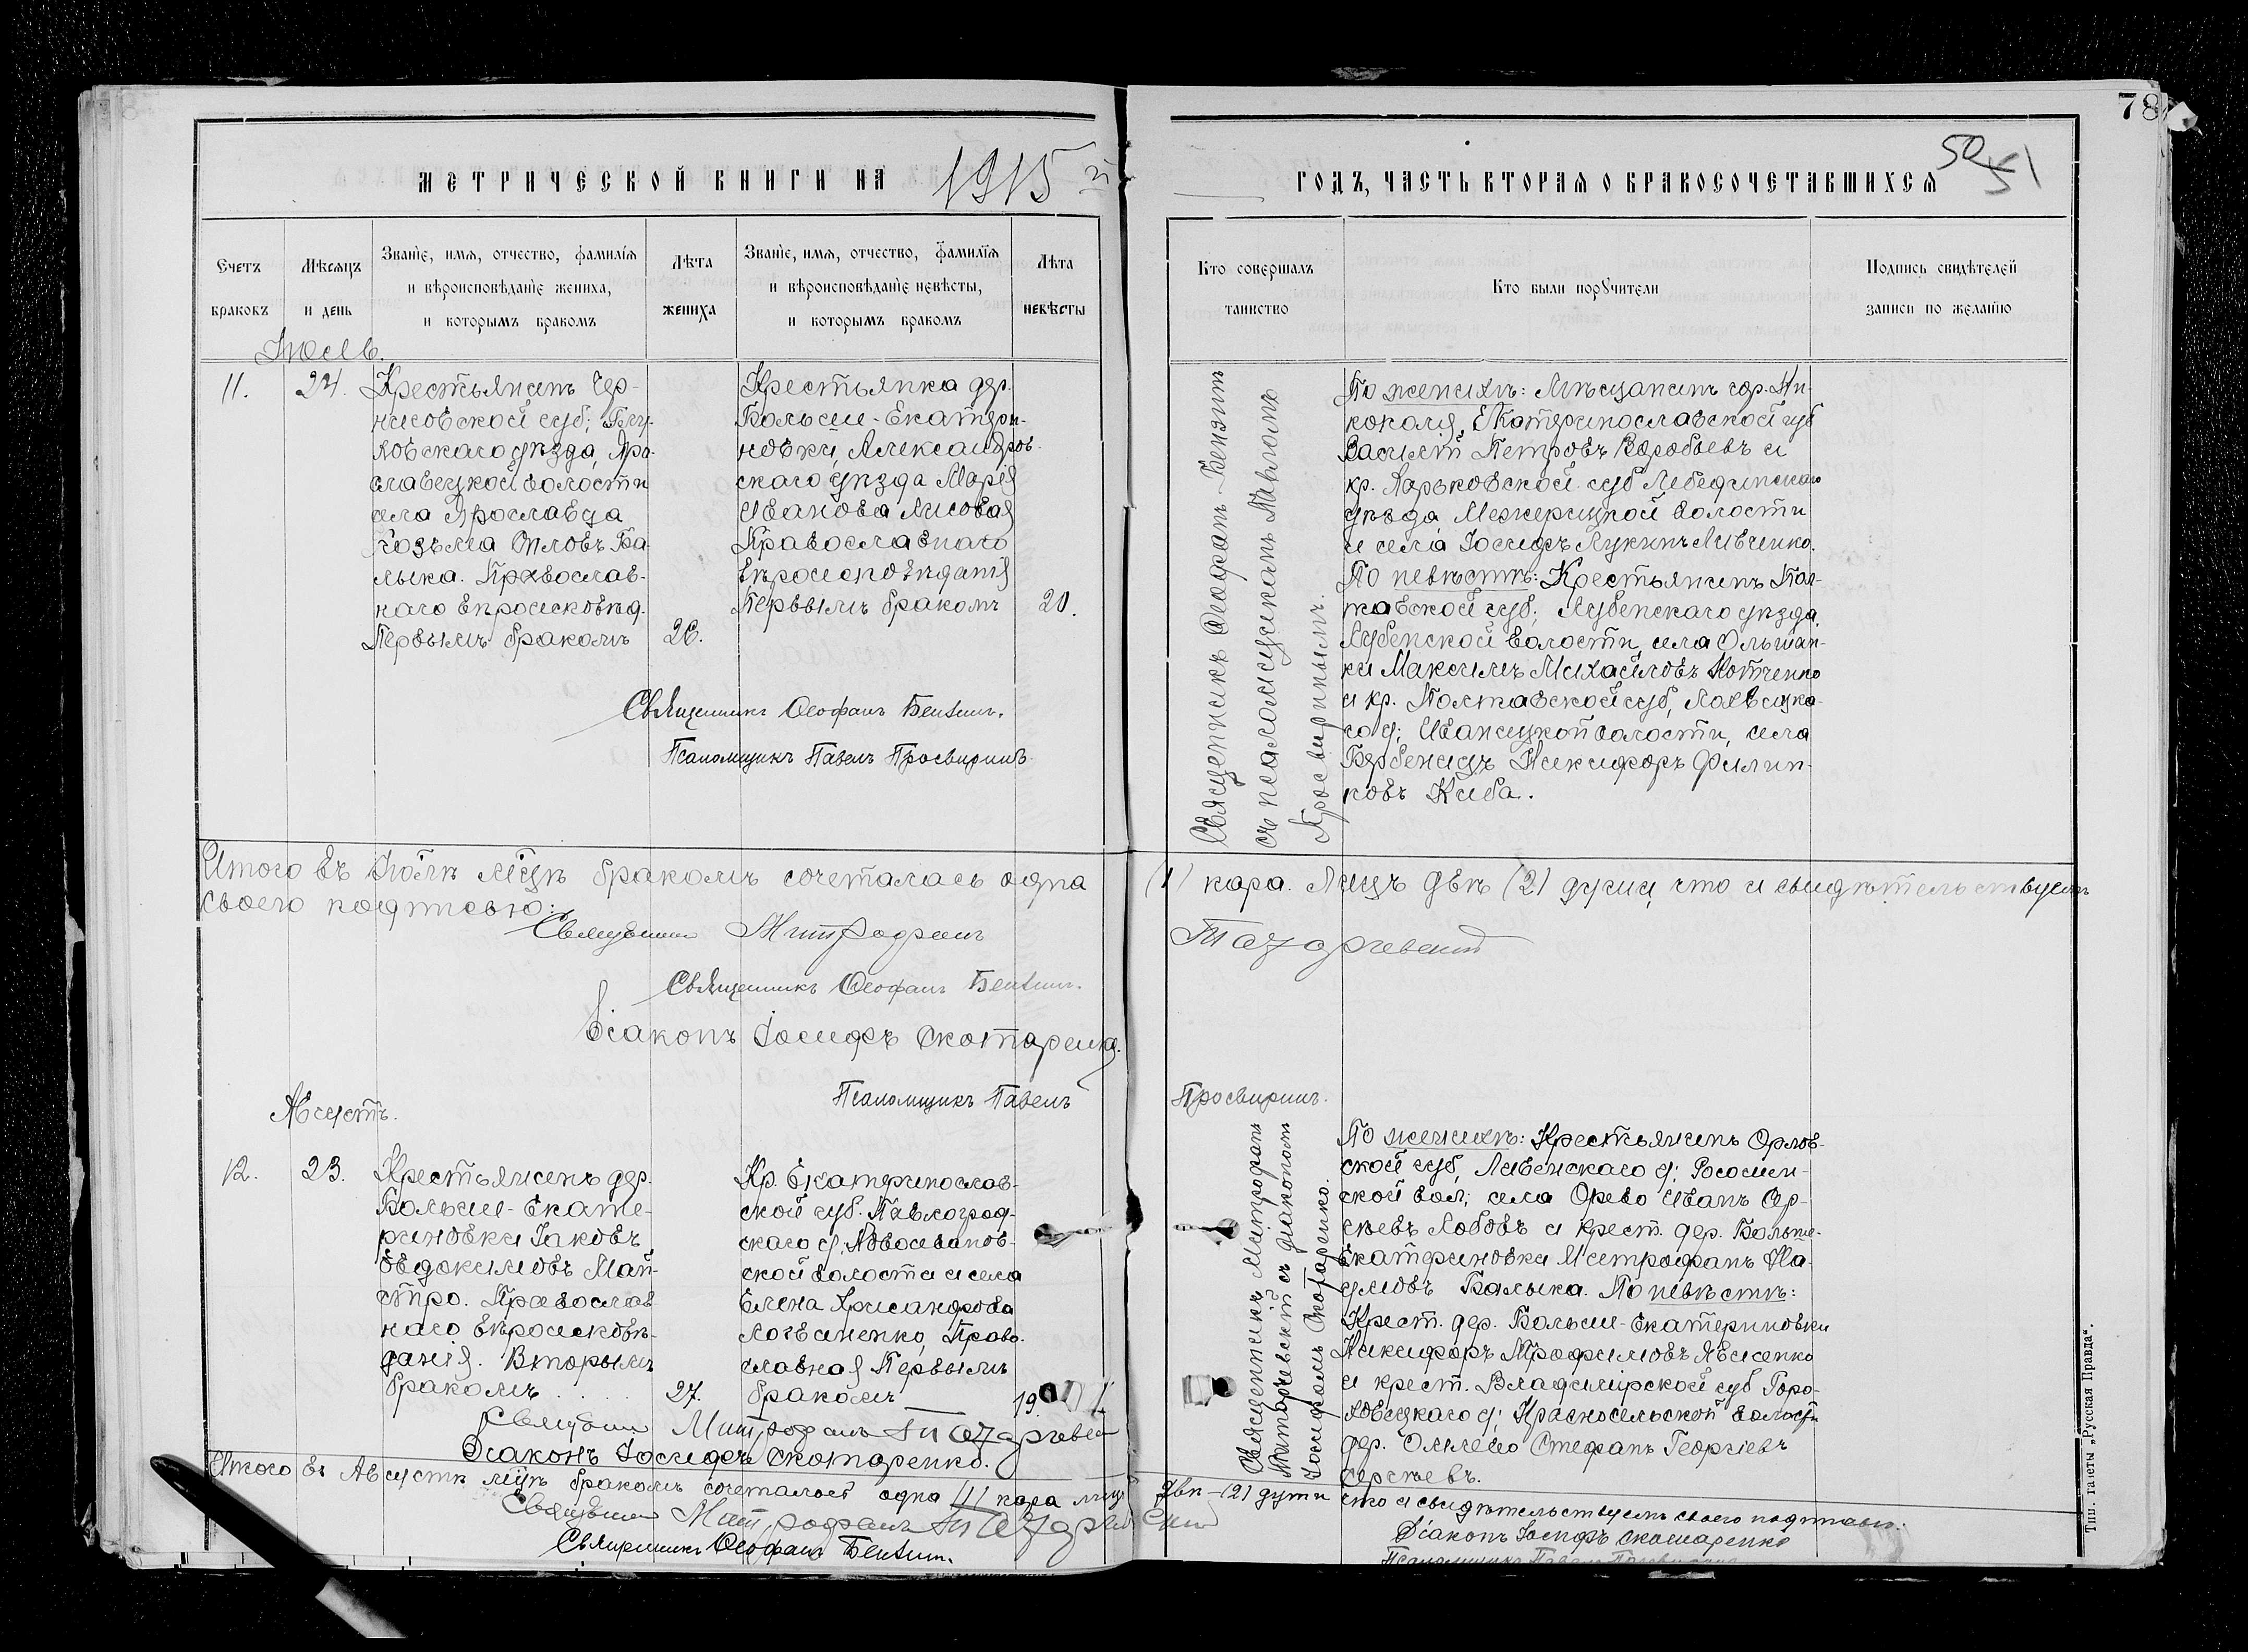 78
50
51
МЕТРИЧЕСКОЙ КНИГИ НА 1915
ГОДЪ, ЧАСТЬ ВТОРАЯ О БРАКОСОЧЕТАВШИХСЯ
Счетъ браковъ
Мѣсяцъ и день
Званіе, имя, отчество, фамилія
и вѣроисповѣданіе жениха,
и которымъ бракомъ
Лѣта жениха
Званіе, имя, отчество, фамилія
и вѣроисповѣданіе невѣсты,
и которымъ бракомъ
Лѣта невѣсты
Кто совершалъ
таинство
Кто были поручители
Подпись свидѣтелей
записи по желанію
Іюль.
11.
24.
Крестьянинъ Чер-
ниговской губ; Глу-
ховскаго уѣзда, Яро-
славецкой волости
села Ярославца
Козьма Іпловъ Ба-
лыка. Православ-
наго вѣроисповѣд.
Первымъ бракомъ
26.
Крестьянка дер.
Больше-Екатери-
новки, Александров-
скаго уѣзда Марія
Иванова Лисовая
Православнаго
вѣроисповѣданія
Первымъ бракомъ
20.
Священникъ Ѳеофанъ Бензинъ
съ псаломщикомъ Павломъ
Просвиринымъ.
По женихѣ: Мѣщанинъ гор. Ни-
кополя, Екатеринославской губ
Василій Петровъ Воробьевъ и
кр. Харьковской губ Лебединскаго
уѣзда, Межерицкой волости
и села Іосифъ Лукинъ Ливченко.
По невѣстѣ: Крестьянинъ Пол-
тавской губ; Лубенскаго уѣзда,
Лубенской волости, села Ольшан-
ки Максимъ Михайловъ Котченко
и кр. Полтавской губ, Лохвицка-
го у; Иваницкой волости, села
Бербеницъ Никифоръ Филип-
повъ Киба.
Священникъ Ѳеофанъ Бензинъ.
Псаломщикъ Павелъ Просвиринъ
Итого въ Іюлѣ мцѣ бракомъ сочеталась одна (1) пара. Лицъ двѣ (2) души, что и свидѣтельствуемъ
своею подписью:
Священникъ Митрофанъ
Священникъ Ѳеофанъ Бензинъ.
Діаконъ Іосифъ Скотаренко.
Псаломщикъ Павелъ Просвиринъ.
Августъ.
12.
23.
Крестьянинъ дер.
Больше-Екате-
риновки Іаковъ
Евдокимовъ Май-
стро. Православ
наго вѣроисповѣ-
данія. Вторымъ
бракомъ
27.
Кр. Екатеринослав-
ской губ. Павлоград-
скаго у; Новоивановской
волости и села
Елена Хрисанфова
Логвиненко, Право-
славная Первымъ
бракомъ
19
Священникъ Митрофанъ
съ діакономъ
Іосифомъ Скотаренко.
По женихѣ: Крестьянинъ Орлов-
ской губ, Ливенскаго у; Рососшен-
ской вол; села Орево Иванъ Сер-
гѣевъ Лобовъ и крест. дер. Больше-
Екатериновки Митрофанъ На-
умовъ Балыка. По невѣстѣ:
Крест. дер. Больше-Екатериновки
Никифоръ Трофимовъ Явисенко
и крест. Владимірской губ Горо-
ховецкаго у; Красносельской волости
дер. Стефанъ Георгіевъ
Сергѣевъ.
Священникъ Митрофанъ
Діаконъ Іосифъ Скотаренко.
Итого въ Августѣ мцѣ бракомъ сочеталось одна (1) пара лицъ двѣ (2) души что и свидѣтельствуемъ своею подписью.
Священникъ Митрофанъ
Священникъ Ѳеофанъ Бензинъ.
Діаконъ Іосифъ Скотаренко
Псаломщикъ Павелъ Просвиринъ
Тип. газеты „Русская Правда“.